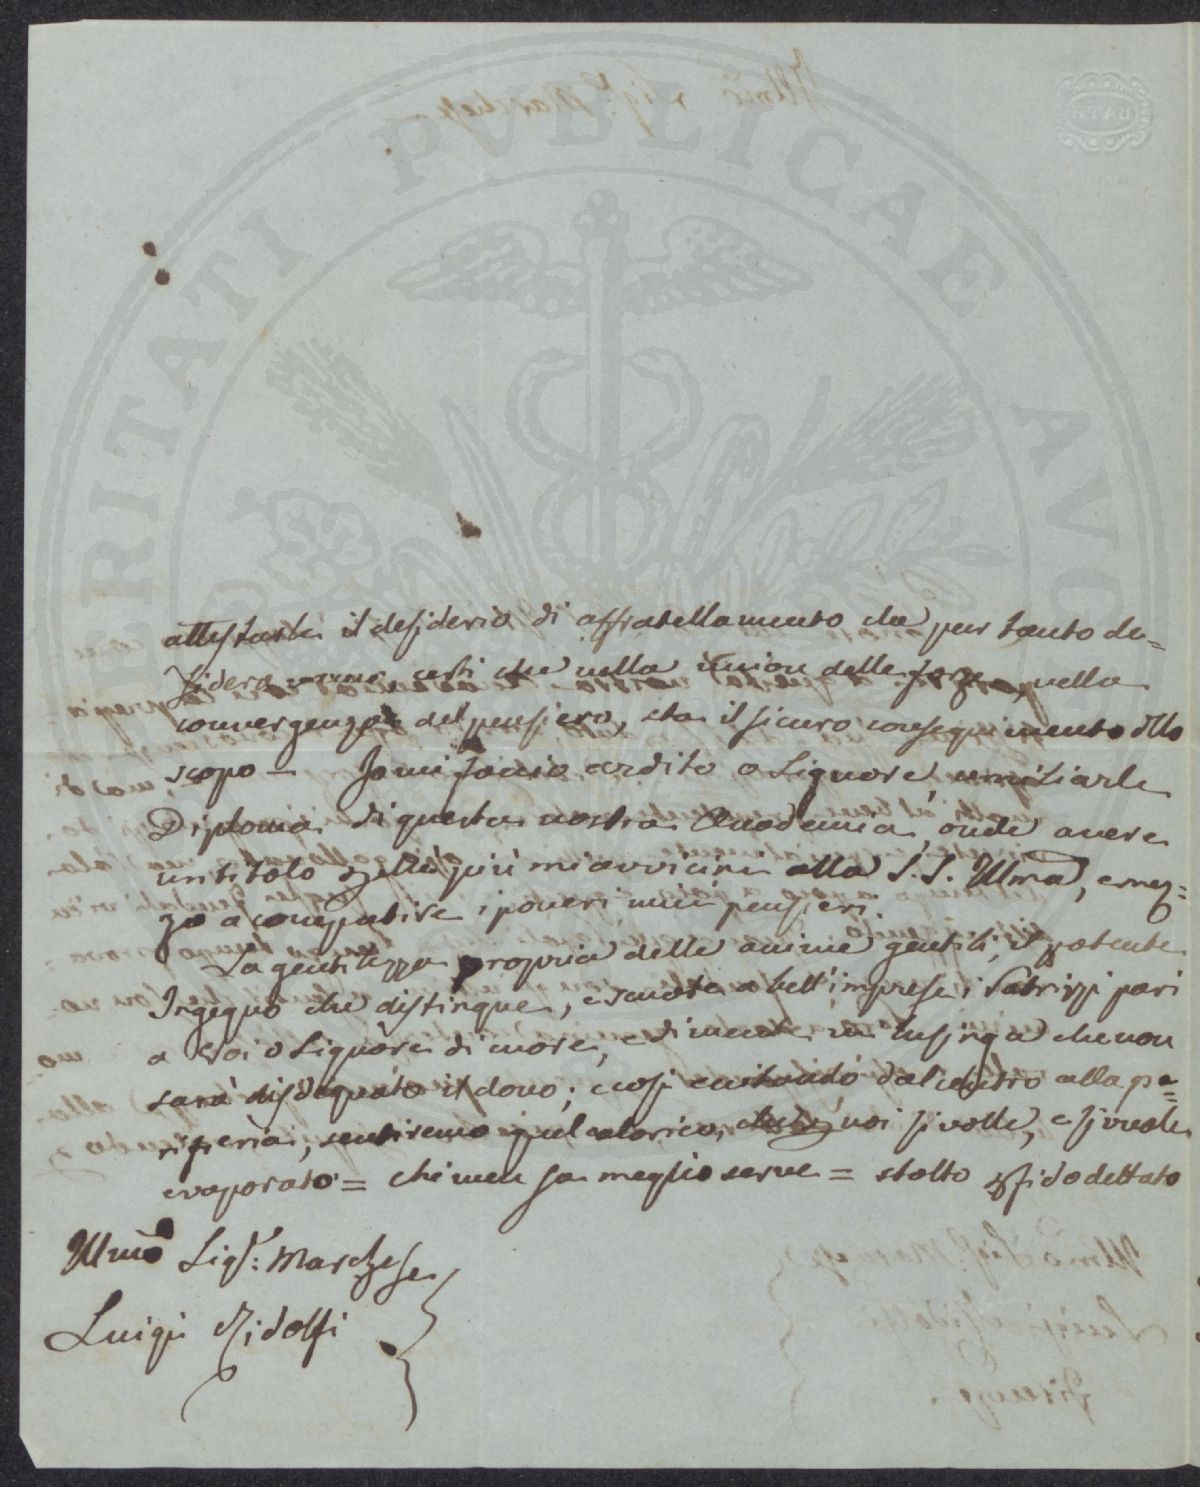 PVBLICAE
BATH
attestarle il desiderio di affratellamento che pur tanto de=
sidera certi che nella union delle forze, nella
convergenza del pensiero, sta il sicuro conseguimento dllo
scopo — Io mi faccio ardito o Signore, umiliarle
Diploma di questa nostra Accademia, onde avere
un titolo che più mi avvicini alla S. S. Illma, e mez=
zo a compatire i poveri miei pensieri.
La gentilezza propria delle anime gentili, il potente
Ingegno che distingue, e scuote a bell'imprese i Patrizj pari
a Voi o Signore di cuore, e di mente mi lusinga che non
sarà disdegnato il dono; e così dal centro alla pe=
riferia, sentiremo quel calorico, noi si volle, e si vuole
evaporato = chi men sa meglio serve = stolto e fido dettato
Illmo Sigr. Marchese
Luigi Ridolfi